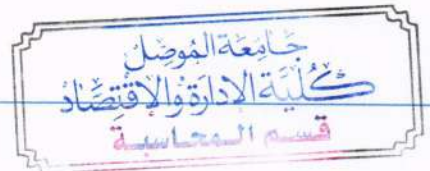 جَامِعَة المُوصِل
كُلِّيَّة الإدَارَة وَالاِقْتِصَاد
قسم المحاسبة